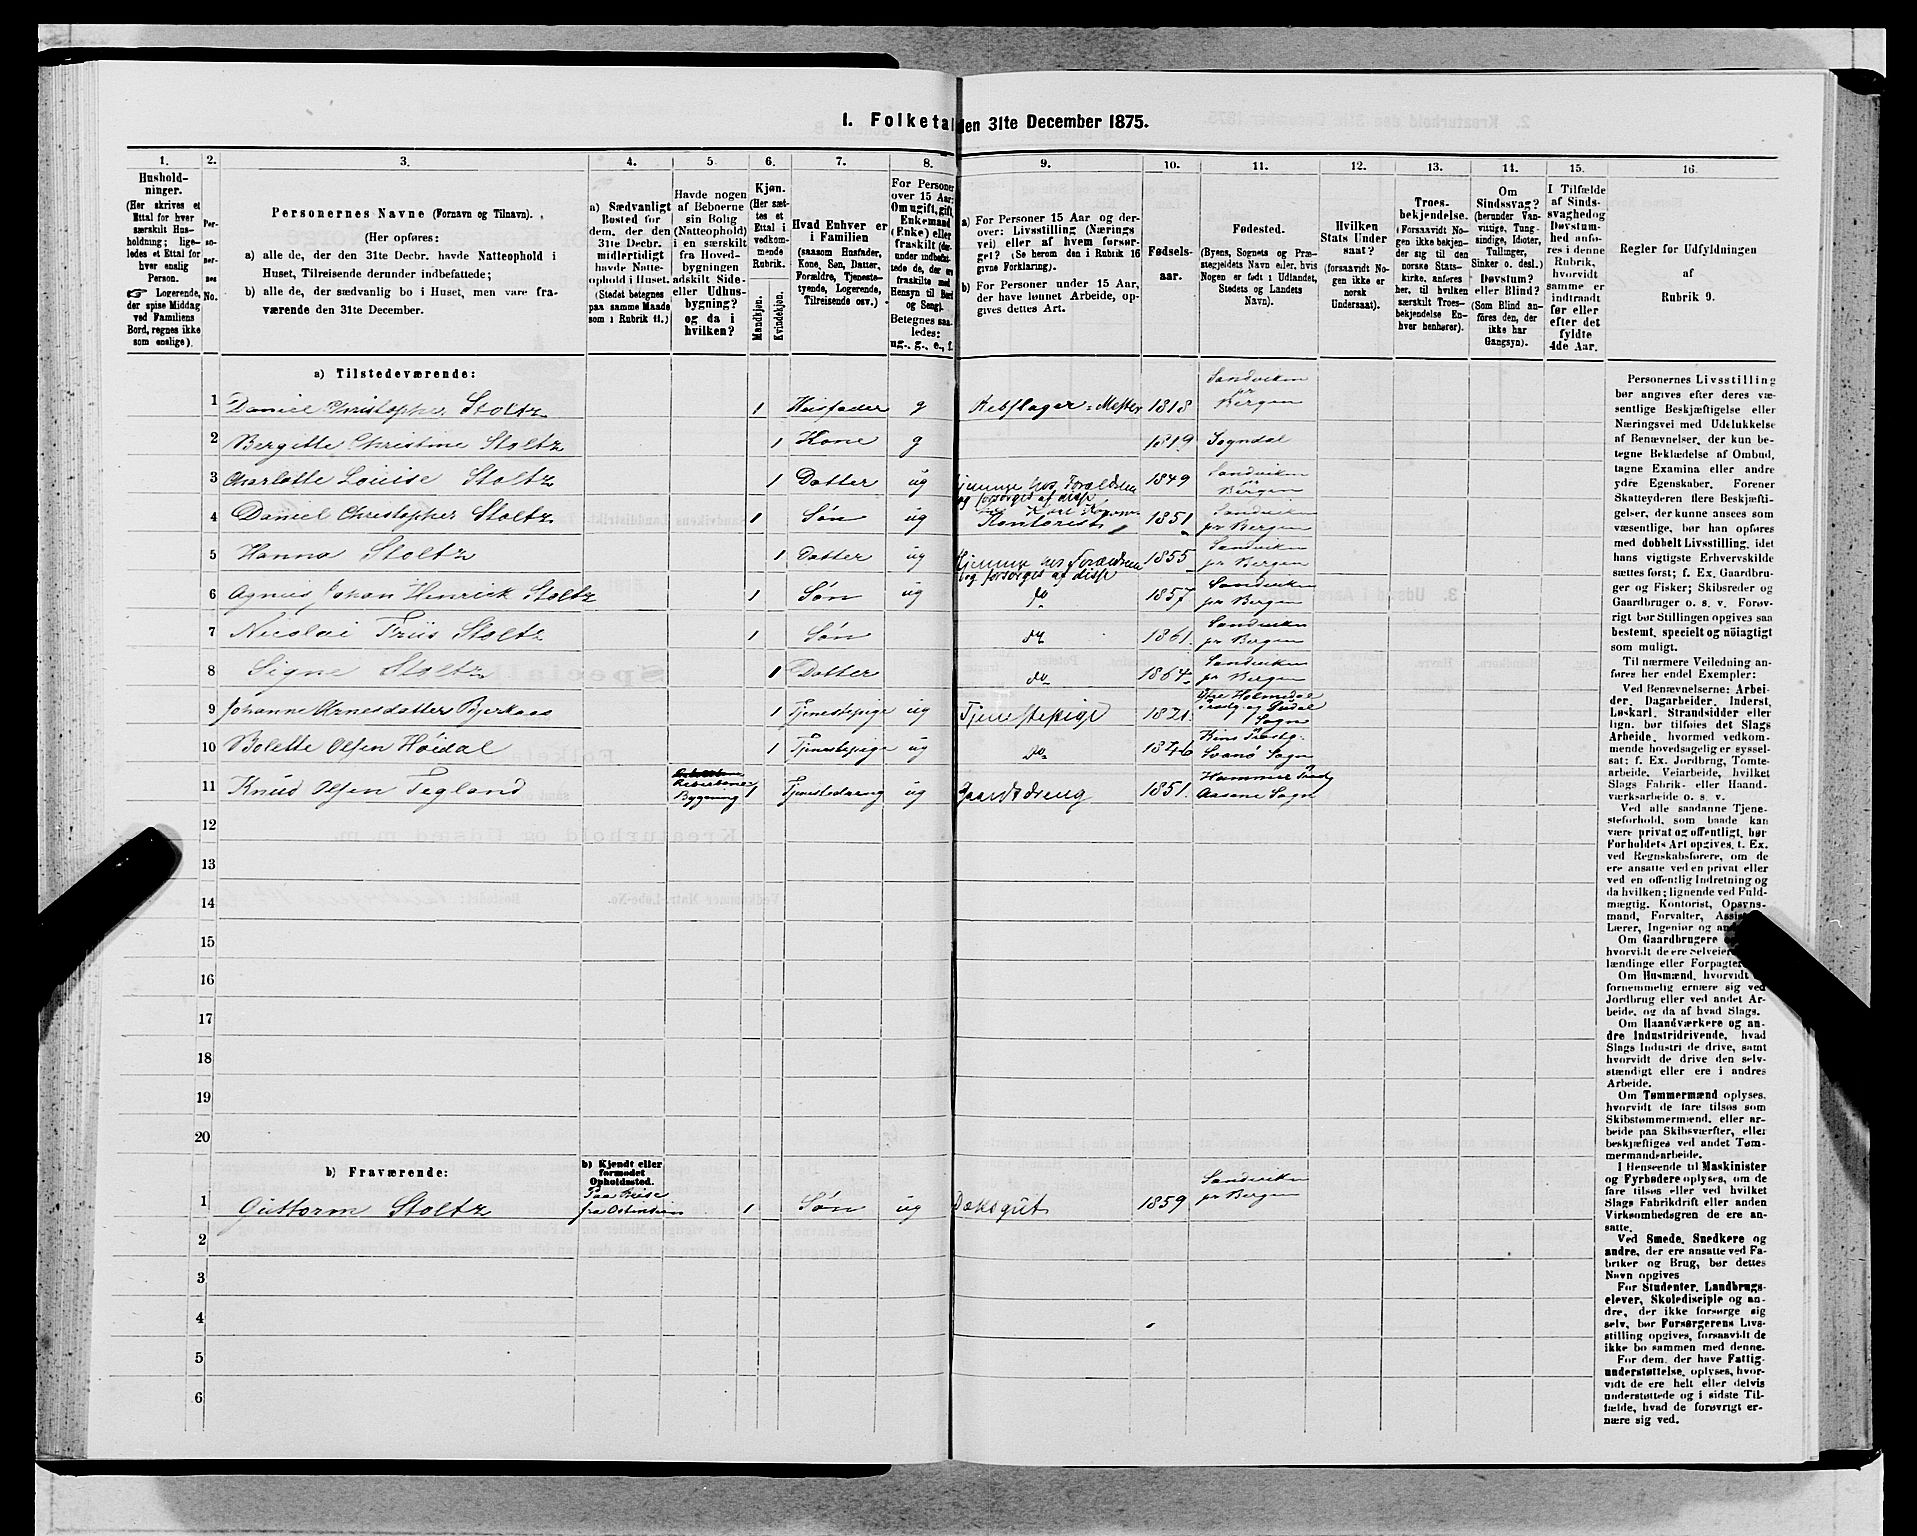 1. Folketal den 31te December 1875.
1. 2. 3. 4. 5. 6. 7. 8. 9. 10. 11. 12. 13. 14. 15. 16.
Hushold-
ninger.
(Her skrives et
Ettal for hver
særskilt Hus-
holdning; lige-
ledes et Ettal for
hver enslig
Person.
☞ Logerende,
der spise Middag
ved Familiens
Bord, regnes ikke
som enslige).
Per-
so-
ner-
nes
No.
Personernes Navne (Fornavn og Tilnavn).
(Her opføres:
a) alle de, der den 31te Decbr. havde Natteophold i
Huset, Tilreisende derunder indbefattede;
b) alle de, der sædvanlig bo i Huset, men vare fra-
værende den 31te December.
a) Sædvanligt
Bosted for
dem, der den
31te Decbr.
midlertidigt
havde Natte-
ophold i Huset.
(Stedet betegnes
paa samme Maade
som i Rubrik 11.)
Havde nogen
af Beboerne
sin Bolig
(Natteophold)
i en særskilt
fra Hoved-
bygningen
adskilt Side-
eller Udhus-
bygning?
og da i
hvilken?
Kjøn.
(Her sæt-
tes et
Ettal i
vedkom-
mende
Rubrik.
Mandkjøn.
Kvindekjøn.
Hvad Enhver er
i Familien
(saasom Husfader,
Kone, Søn, Datter,
Forældre, Tjeneste-
tyende, Logerende,
Tilreisende osv.)
For Personer
over 15 Aar:
Om ugift, gift,
Enkemand
(Enke) eller
fraskilt (der-
under indbefat-
tede de, der ere
fraskilte med
Hensyn til Bord
og Seng).
Betegnes saa-
ledes:
ug., g., e., f.
a) For Personer 15 Aar og der-
over: Livsstilling (Nærings
vei) eller af hvem forsør-
get? (Se herom den i Rubrik 16
givne Forklaring).
b) For Personer under 15 Aar,
der have lønnet Arbeide, op-
gives dettes Art.
Fødsels-
aar.
Fødested.
(Byens, Sognets og Præ-
stegjeldets Navn eller, hvis
Nogen er født i Udlandet,
Stedets og Landets
Navn).
Hvilken
Stats Under
saat?
(forsaavidt No-
gen ikke er
norsk
Undersaat).
Troes-
bekjendelse.
(Forsaavidt No-
gen ikke bekjen-
der sig til den
norske Stats-
kirke, anføres
her, til hvilken
særskilt Troes-
bekjendelse En-
hver henhører).
Om
Sindssvag?
(herunder Van-
vittige, Tung-
sindige, Idioter,
Tullinger,
Sinker o. desl.)
Døvstum?
eller Blind?
(Som Blind an-
føres den, der
ikke har
Gangsyn).
I Tilfælde
af Sinds-
svaghed og
Døvstum-
hed anfø-
res i denne
Rubrik,
hvorvidt
samme er
indtraadt
før eller
efter det
fyldte
4de Aar.
Regler for Udfyldningen
af
Rubrik 9.
a) Tilstedeværende:
1 Daniel Christopher Stoltz 1 Husfader g Rebslager-Mester 1818 Sandviken pr Bergen
2 Bergitte Christine Stoltz 1 Kone g 1819 Sogndal
3 Charlotte Louise Stoltz 1 Datter ug Hjemme hos Forældrene og forsørges af disse 1849 Sandviken pr Bergen
4 Daniel Christopher Stoltz 1 Søn ug Kontorist 1851 Sandviken pr Bergen
5 Hanna Stoltz 1 Datter ug Hjemme hos Forældrene og forsørges af disse 1855 Sandviken pr Bergen
6 Agnus Johan Henrick Stoltz 1 Søn ug do 1857 Sandviken pr Bergen
7 Nicolai Friis Stoltz 1 Søn do 1861 Sandviken pr Bergen
8 Signe Stoltz 1 Datter do 1864 Sandviken pr Bergen
9 Johanne Arnesdatter Bjerkaas 1 Tjenestepige ug Tjenestepige 1821 Ytre Holmedal Sogn
10 Bolette Olsen Høidal 1 Tjenestepige ug do 1846 Kins Præstg. Svanø Sogn
11 Knud Olsen Tegland Bygning 1 Tjenestedreng ug Gaardsdreng 1851 Hammer Præstg Aasene Sogn
12
13
14
15
16
17
18
19
20
b) Fraværende:
b) Kjendt eller
formodet
Opholdssted.
1 Guttorm Stoltz Paa Reise fra Ostindien 1 Søn ug Dæksgut 1859 Sandviken pr Bergen
2
3
4
5
6
Personernes Livsstilling
bør angives efter deres væ-
sentlige Beskjæftigelse eller
Næringsvei med Udelukkelse
af Benævnelser, der kun be-
tegne Beklædelse af Ombud,
tagne Examina eller andre
ydre Egenskaber. Forener
Skatteyderen flere Beskjæfti-
gelser, der kunne ansees som
væsentlige, bør han opføres
med dobbelt Livsstilling, idet
hans vigtigste Erhvervskilde
sættes først; f. Ex. Gaardbru-
ger og Fisker; Skibsreder og
Gaardbruger o. s. v. Forøv-
rigt bør Stillingen opgives saa
bestemt, specielt og nöiagtigt
som muligt.
Til nærmere Veiledning an-
føres her endel Exempler:
Ved Benævnelserne: Arbei-
der, Dagarbeider, Inderst,
Løskarl, Strandsidder eller
lign. bør tilføies det Slags
Arbeide, hvormed vedkom-
mende hovedsagelig er syssel-
sat; f. Ex. Jordbrug, Tomte-
arbeide, Veiarbeide, hvilket
Slags Fabrik- eller Haand-
værksarbeide o. s. v.
Ved alle saadanne Tjene-
steforhold, som baade kan
være privat og offentligt, bør
Forholdets Art opgives, t. Ex.
ved Regnskabsførere, om de
ere ansatte ved en privat eller
ved en offentlig Indretning og
da hvilken; lignende ved Fuld-
mægtig, Kontorist, Opsyns-
mand, Forvalter, Assist
Lærer, Ingeniør og an
Om Gaardbrugere
hvorvidt de ere Selveiere
lændinge eller Forpagter
Om Husmænd, hvorvidt
fornemmelig ernære sig ved
Jordbrug eller ved andet Ar-
beide, og da af hvad Slags.
Om Haandværkere og an-
dre Industridrivende, hvad
Slags Industri de drive, samt
hvorvidt de drive den selv-
stændigt eller ere i andres
Arbeide.
Om Tømmermænd oplyses,
hvorvidt de fare tilsøs som
Skibstømmermænd, eller ar-
beide paa Skibsværfter, eller
beskjæftiges ved andet Tøm-
mermandarbeide.
I Henseende til Maskinister
og Fyrbødere oplyses, om de
fare tilsøs eller ved hvilket
Slags Fabrikdrift eller anden
Virksombedsgren de ere an-
satte.
Ved Smede, Snedkere og
andre, der ere ansatte ved Fa-
briker og Brug, bør dettes
Navn opgives
For Studenter, Landbrugs-
elever, Skoledisciple og an-
dre, der ikke forsørge sig
selv, bør Forsørgerens Livs-
stilling opgives, forsaavilt de
ikke bo sammen med denne.
For dem, der have Fattig-
understøttelse, oplyses, hvor-
vidt de ere helt eller delvis
understøttede og i sidste Til-
fælde, hvad de forøvrigt er-
nære sig ved.